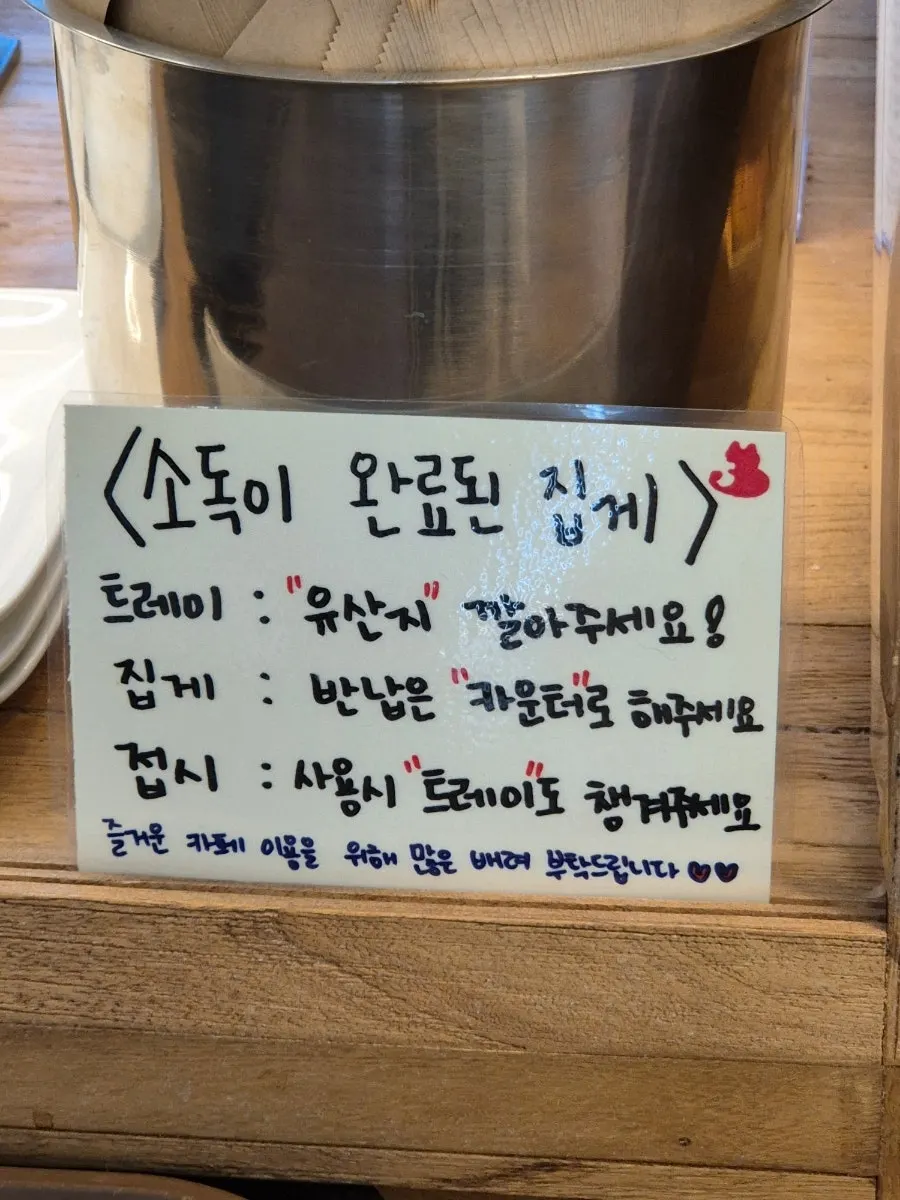 <소독이 완료된 집게>
트레이 : "유산지" 깔아주세요!
집게 : 반납은 "카운터"로 해주세요
접시 : 사용시 "트레이"도 챙겨주세요
즐거운 카페 이용을 위해 많은 배려 부탁드립니다♡♡